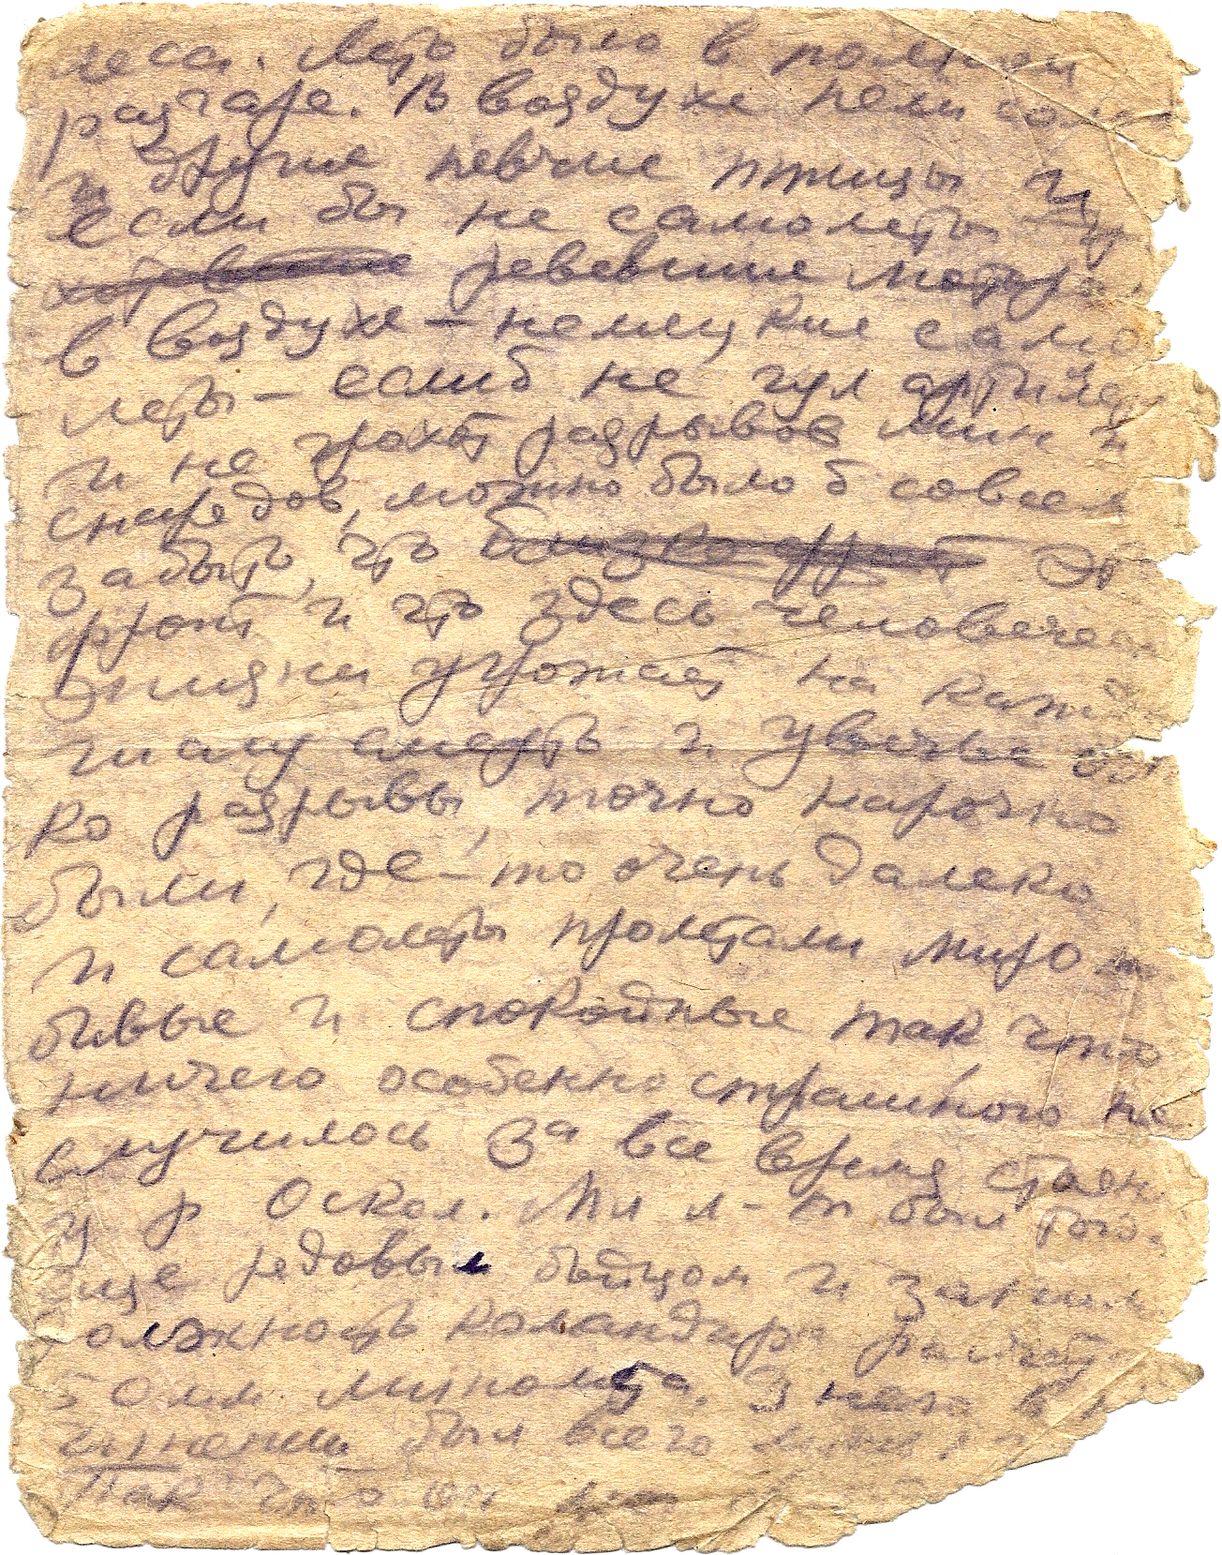 леса. Лето было в полном
разгаре. В воздухе пели
и другие певчие птицы и
если бы не самолеты
ревевшие
в воздухе – немецкие само
леты – еслиб не гул
и не грохот разрывов мин и
снарядов, можно было б совсем
забыть, что
фронт и что здесь
жизни угрожает на
смерть и увечье
ко разрывы, точно нарочно
были, где-то очень далеко
и самолеты пролетали миро
бивые и спокойные так что
ничего особенно страшного не
случилось за все время
у р Оскол. Мл л-т был
еще редовым бойцом и
должность командира
50мм миномета.
был всего
так что он